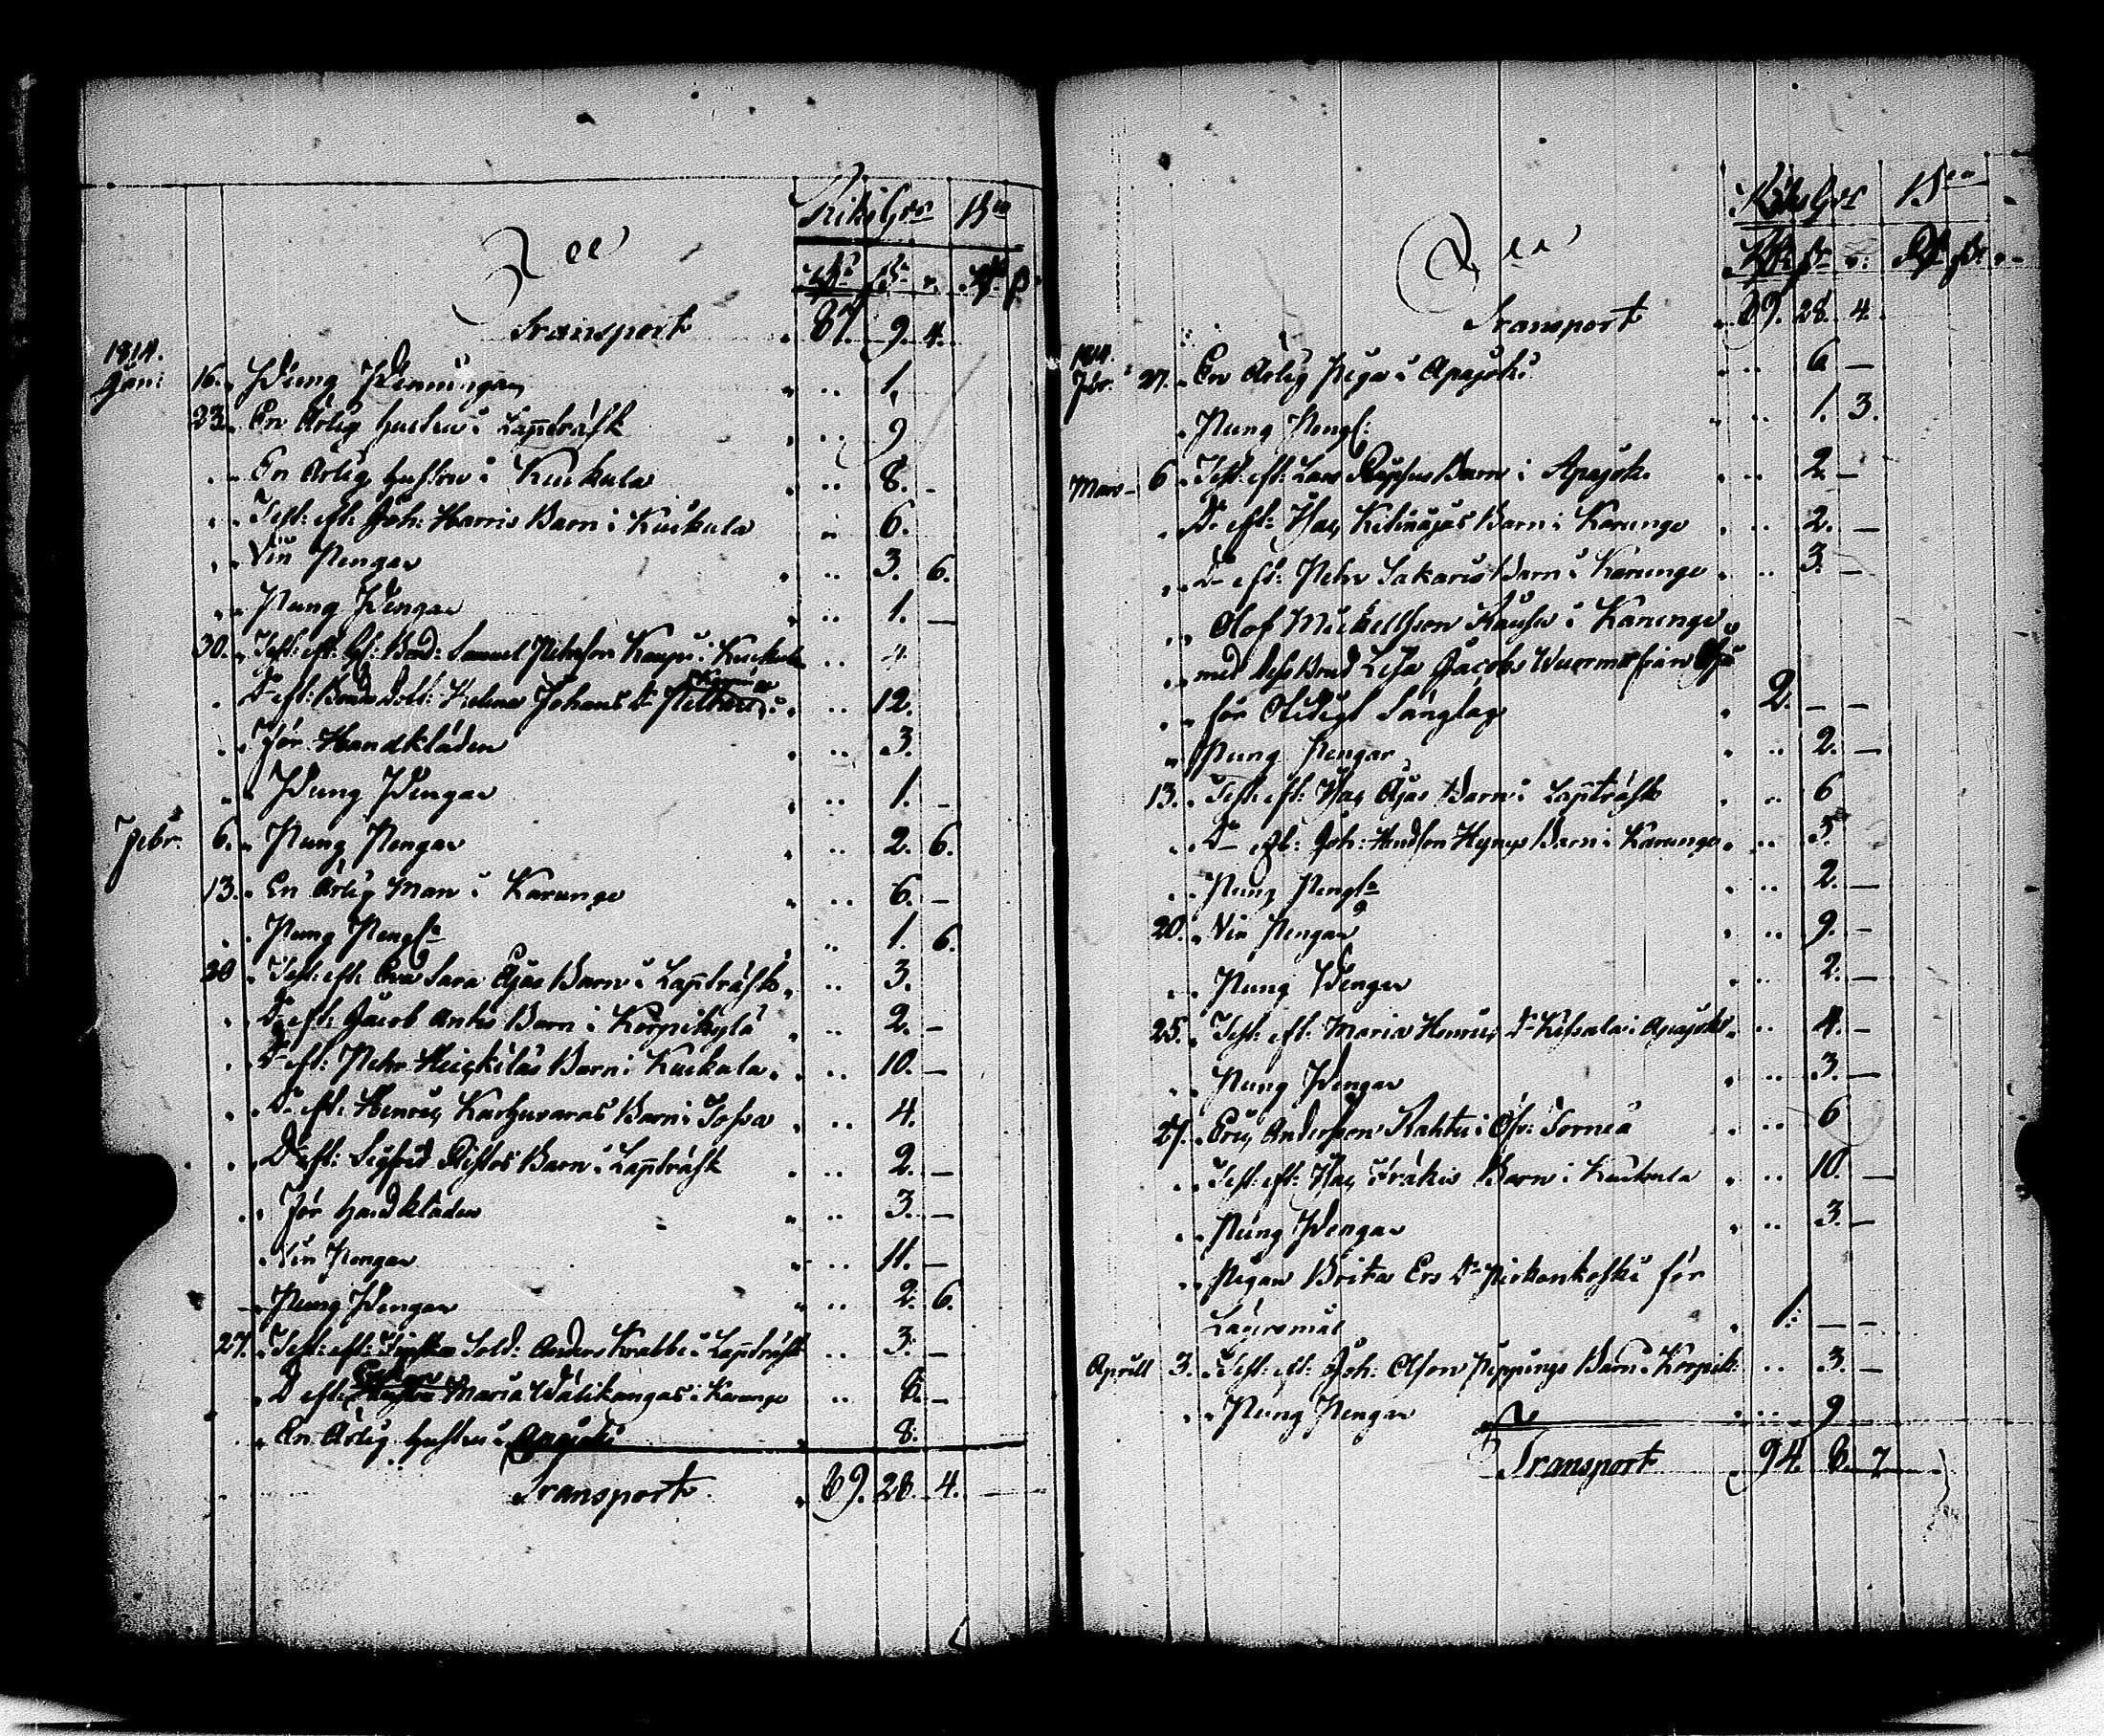 Riksgds Bco
Rdr ß r. Rdr ß
Transport 87. 9. 4.
1814.
Jan: 16. Pung Penningar 1.
23. En Ärlig hustru i Lappträsk 9
En Ärlig hustru i Kuckula 8. -
Test: eft: Joh: Harris Barn i Kuckula 6.
Vin Pengar 3. 6.
Pung Pengar 1. —
30. Test: eft: Samuel Pehrson Kaupi i Kuckula 4.
D° eft: Helena Johans Dr 12.
För Handkläden 3.
Pung Pengar 1. -
Febr. 6. Pung Pengar 2. 6.
13. En Ärlig Man i Karunge 6. -
Pung Peng: 1. 6.
20 Test: eft: Sara Ajas Barn i Lappträsk 3.
D° eft: Jacob Antis Barn i Korpikylä 2. -
D° eft: Pehr Heickiläs Barn i Kuckula 10. —
D° eft: Henric Karhuvaras Barn i 4.
D° eft: Sigfrid Ristos Barn i Lappträsk 2. —
För handkläden 3. —
Vin Pengar 11. —
Pung Pengar 2. 6.
27. Test: eft: Sold: Anders Krabbe i Lappträsk 3. —
D° eft: Maria Wälikangas i Karunge 6. -
En Ärlig hustru i Apajoki 8.
Transport 89. 28. 4.
Riksgds Bco
Rdr ß r: Rdr ß r
Transport 89. 28. 4.
1814.
Febr. 27. En Ärlig Piga i Apajoki 6 —
Pung Peng: 1. 3.
Mars 6 Test: eft: Lars Barn i Apajoki 2 —
D° eft: Isac Kitinojas Barn i Karunge 2. —
D° eft: Pehr Sakaris Barn i Karunge 3. —
Olof Mickelsson i Karunge
med dess Brud Lisa Jacobs Wuorma från
för Otidigt Sänglag 2. — —
Pung Pengar 2. —
13. Test: eft: Isac Ajas Barn i Lappträsk 6
D° eft: Joh: Hindson Barn i Karunge 3
Pung Peng: 2. —
20. Vin Pengar 9. -
Pung Pengar 2. —
25. Test: eft: Maria Henrics Dr i Apajoki 4. -
Pung Pengar 3. —
27. Eric Andersson Lahti i Öfv: Torneå 6
Test: eft: Isac Barn i Kuckula 10. —
Pung Pengar 3. —
Pigan Brita Ers Dr för
Lägersmål 1. — —
Aprill 3. Test: eft: Joh: Olson Pippings Barn i Korpik: 3. —
Pung Pengar 9
Transport 94. 8. 7